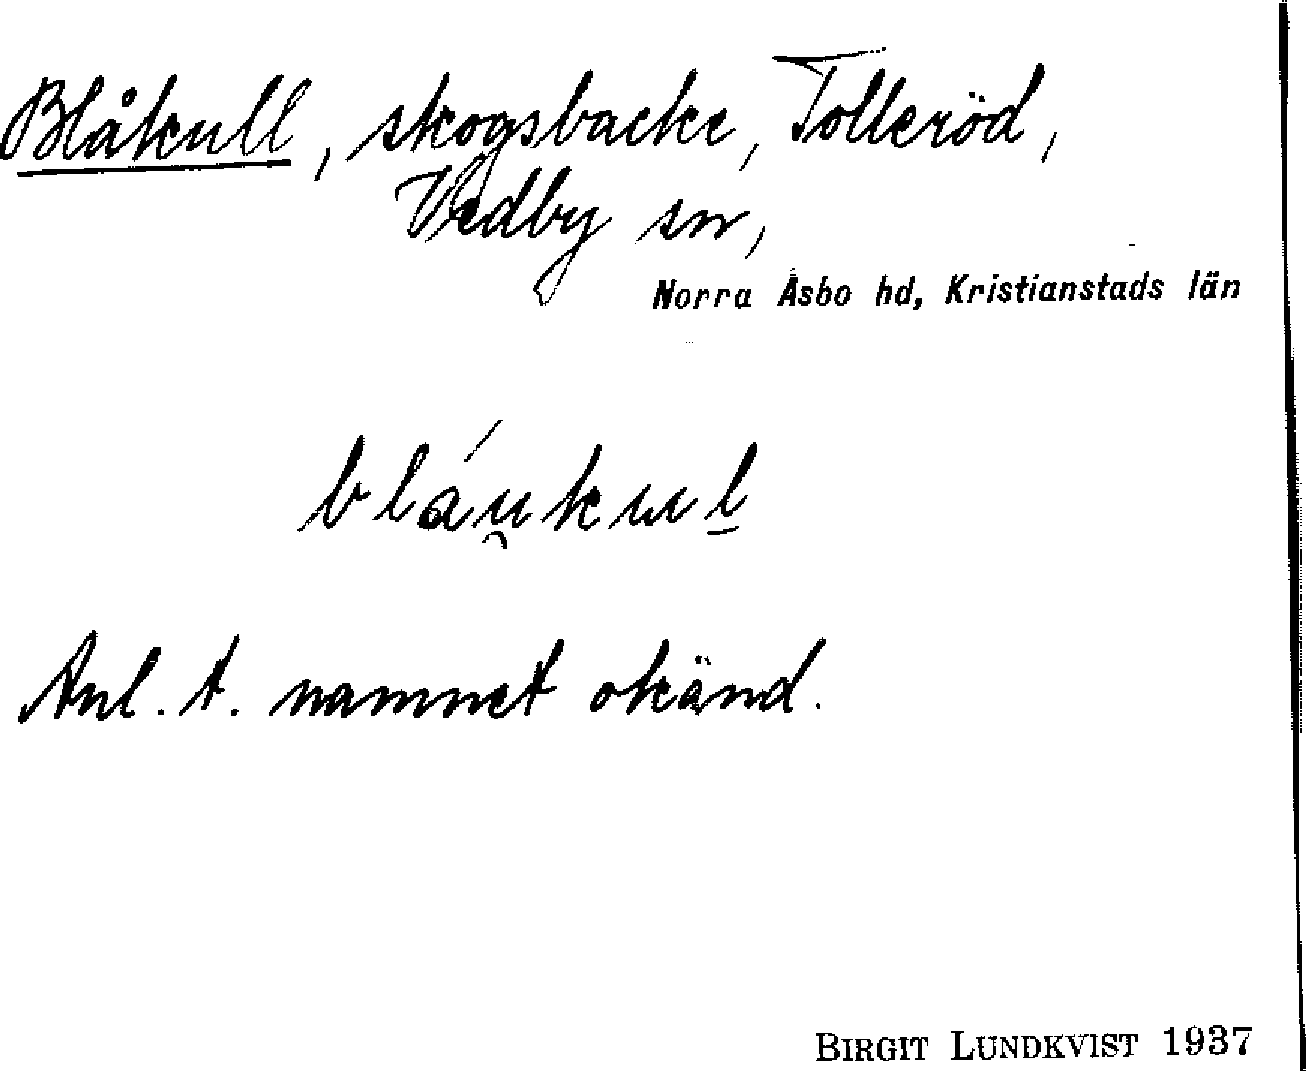 Blåkull, skogsbacke, Tolleröd,
Vedby sn,
Norra Åsbo hd, Kristianstads län
bláu̯kuḻ
Anl. t. namnet okänd.
BIRGIT LUNDKVIST 1937